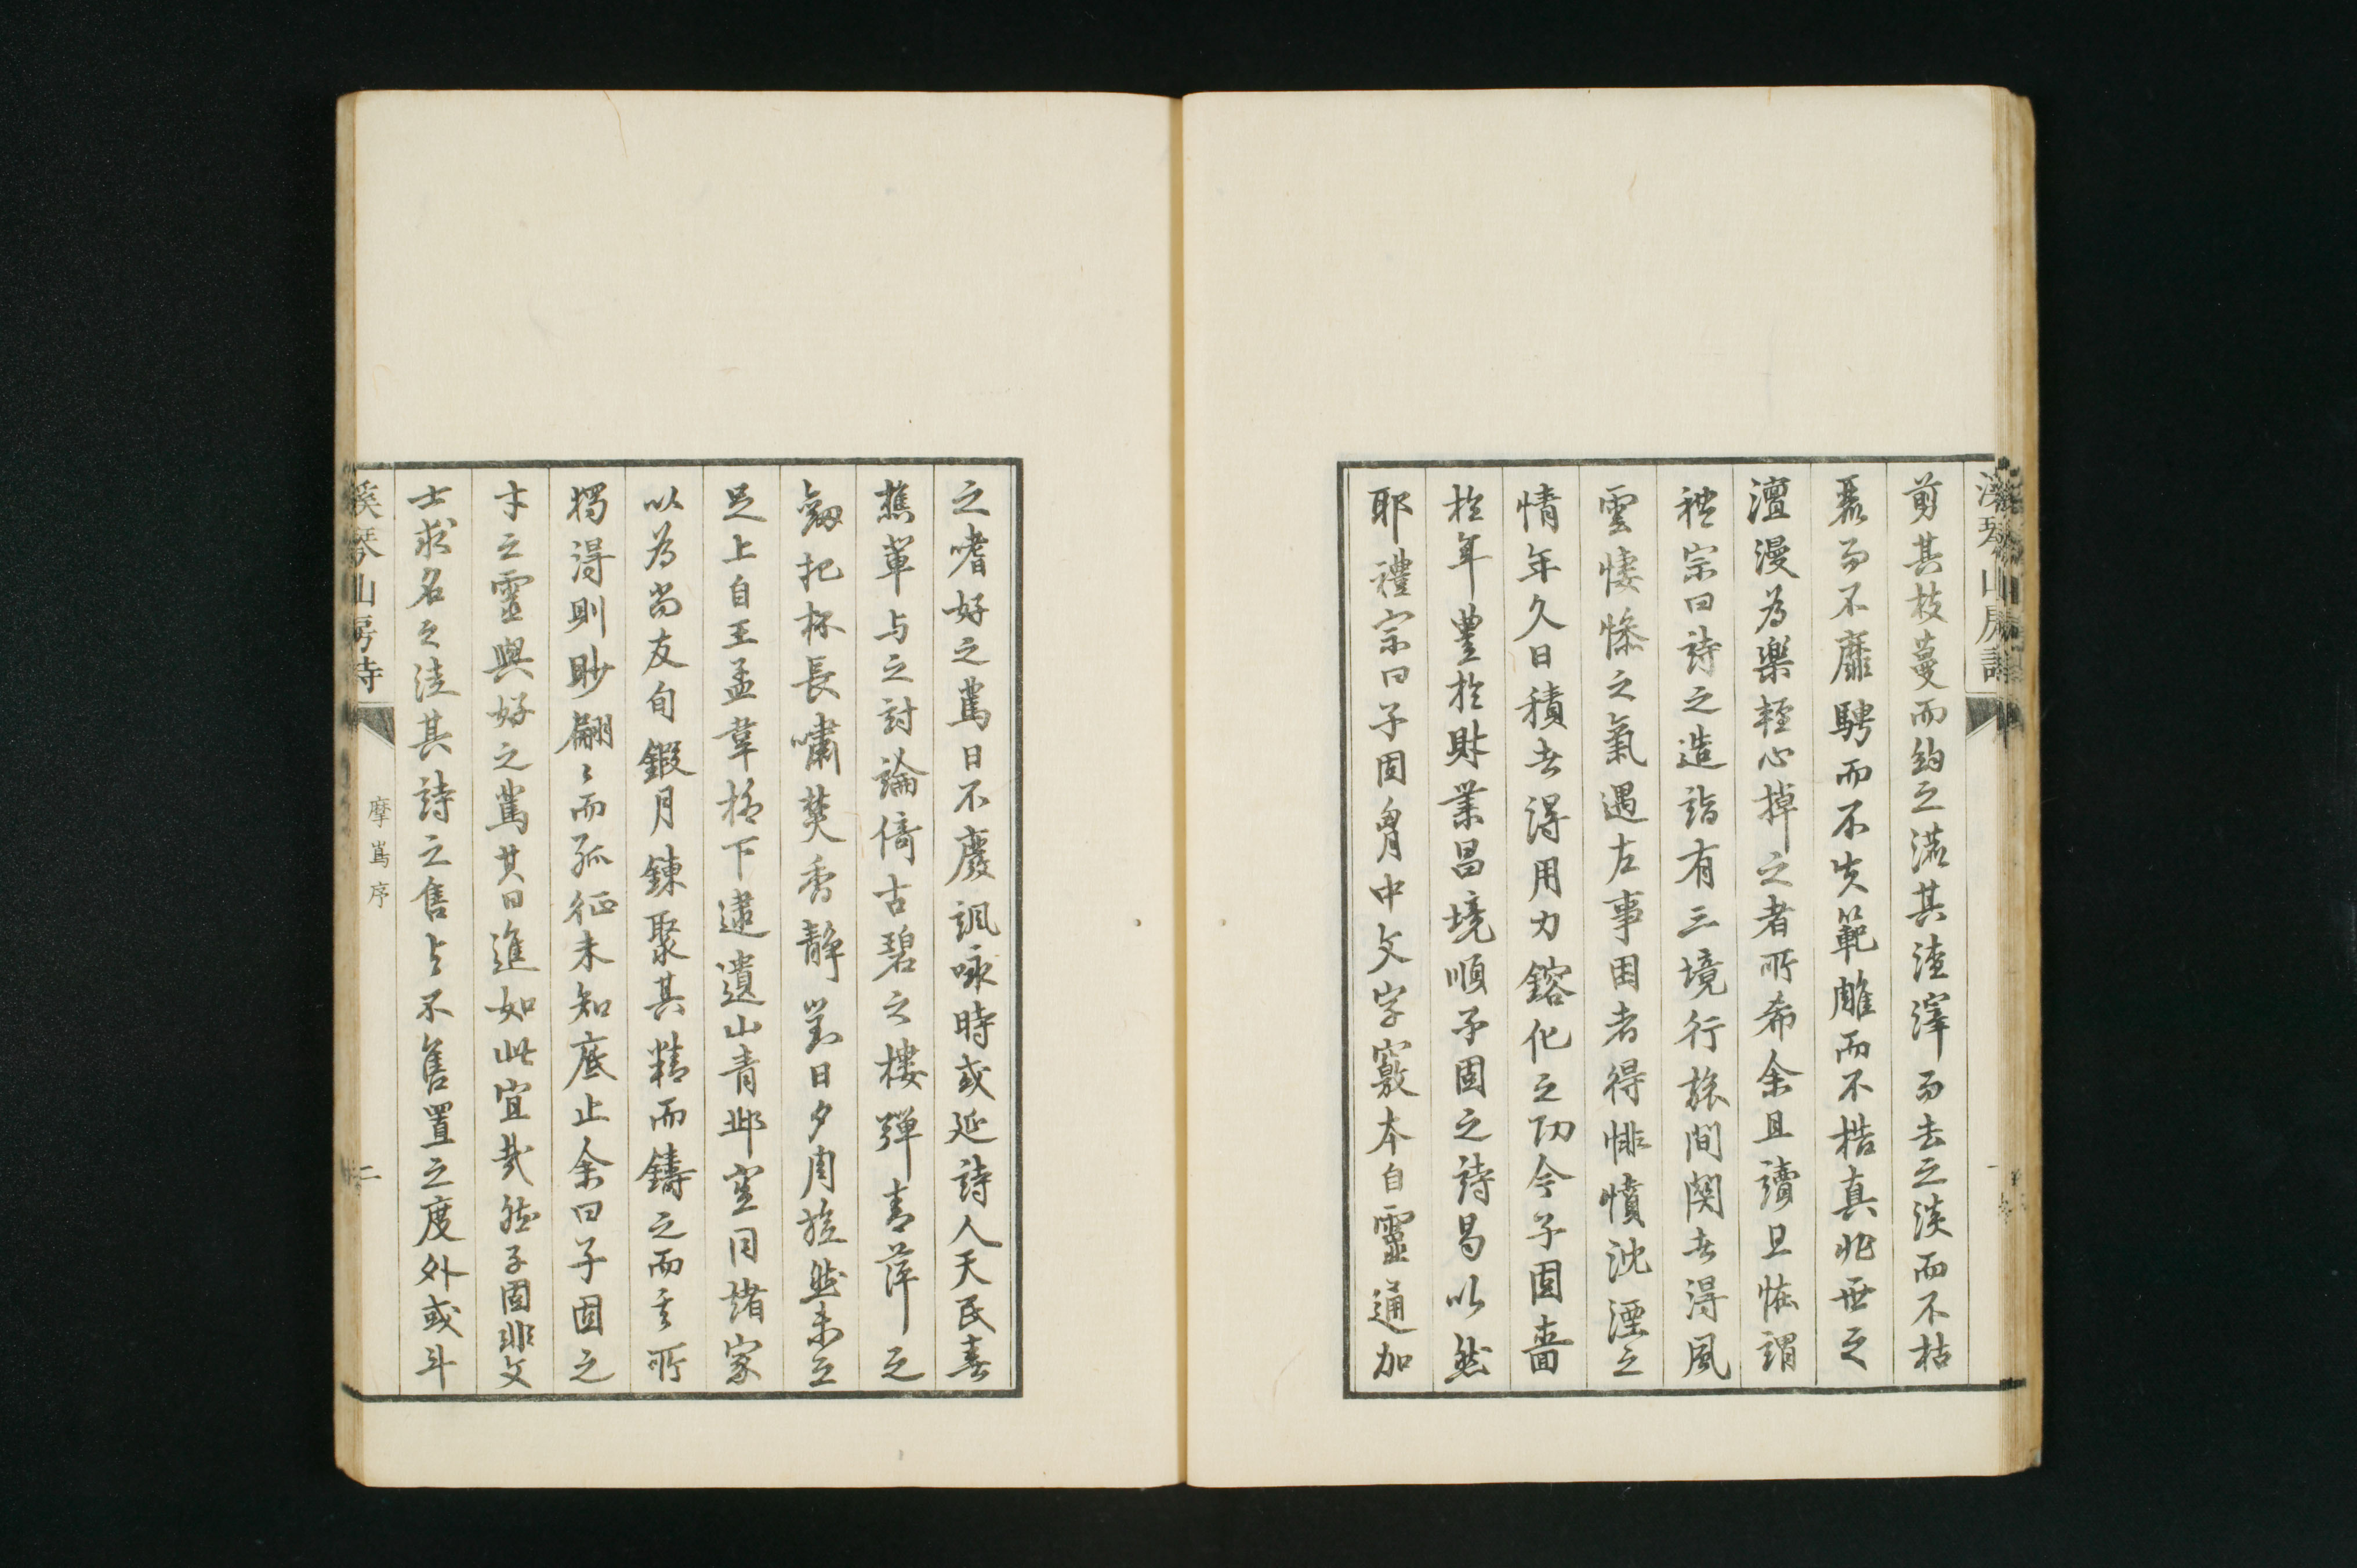 溪琴山房詩
剪其枝蔓而約之滌其渣滓而去之淡而不枯
麗而不靡騁而不失範雕而不梏真非世之
澶漫為樂輕心掉之者所希余且讀且怪謂
禮宗曰詩之造詣有三境行旅間関者得風
雲悽愴之氣遇左事困者得悱憤沈湮之
情年久日積者得用力鎔化之功今子固嗇
於年豐於財業昌境順子固之詩曷以然
耶禮宗曰子固胸中文字竅本自靈通加
之嗜好之篤日不廢諷咏時或延詩人天民春
樵輩与之討論倚古碧之樓彈青萍之
劔把杯長嘯焚香靜對日夕肉旋然未之
足上自王孟韋柳下逮遺山青邱空同諸家
以為尚友旬鍜月鍊聚其精而鑄之而其所
獨得則眇翩〻而孤征未知底止余曰子固之
才之靈與好之篤其日進如此宜哉然子固非文
士求名之徒其詩之售与不售置之度外或斗
溪琴山房詩
摩嶌序
二